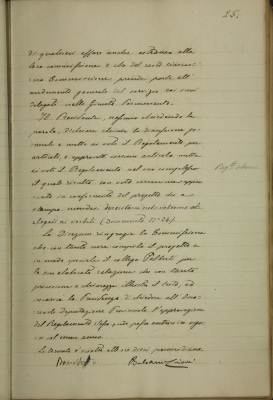 25.
di qualsiasi affare anche estraneo alla
loro commissione e che del resto ciascu-
na Commissione prende parte all'
andamento generale del servizio coi suoi
delegati nella Giunta Permanente.
Il Presidente, nessuno chiedendo la
parola, dichiara chiusa la discussione ge-
nerale e mette ai voti il Regolamento per
articoli, e approvati ciascun articolo mette
ai voti il Regolamento nel suo complesso
il quale risulta con voto unanime appro-
vato in conformità del progetto che a
stampa rimane inserito nel volume al-
legati ai verbali (Documento N° 24).
La Direzione ringrazia la Commissione
che con tanta cura compilò il progetto e
in modo speciale il collega
per la sua elaborata relazione che con tanta
precisione e chiarezza illustra il testo, ed
incarica la Presidenza di chiedere all'
Deputazione Provinciale l'approvazione
del Regolamento stesso onde possa entrare in vigore
col nuovo anno.
La seduta è sciolta alle ore dieci pomeridiane